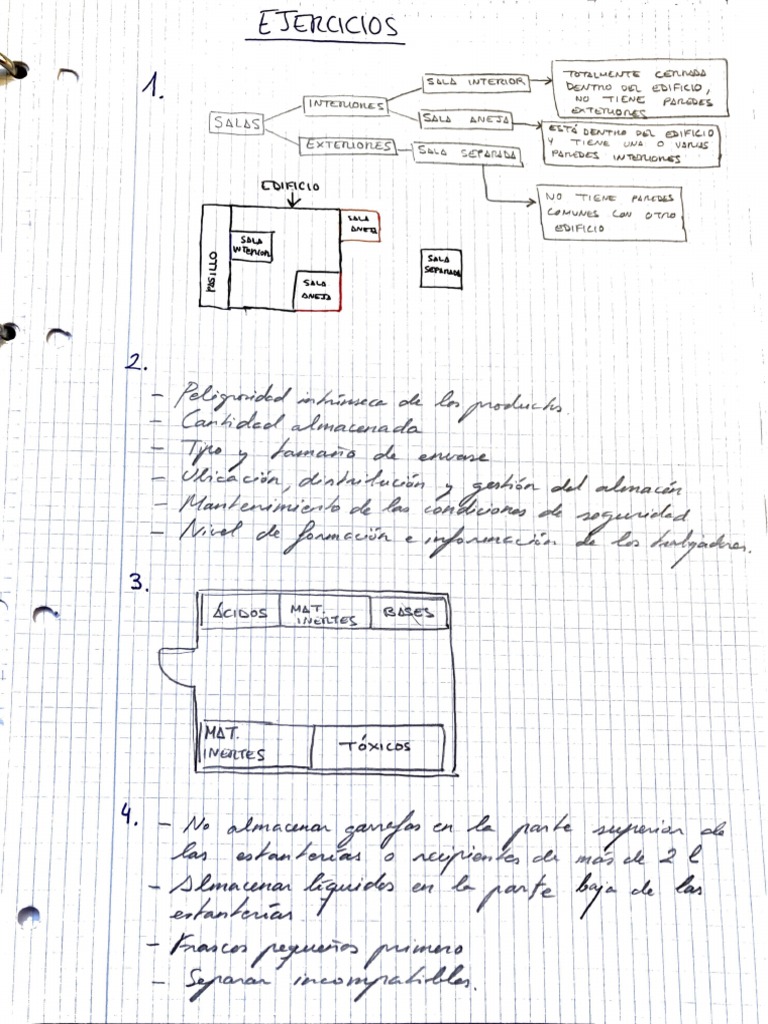 EJERCICIOS
1.
SALAS
INTERIORES
EXTERIORES
SALA INTERIOR
SALA ANEJA
SALA SEPARADA
TOTALMENTE CERRADA
DENTRO DEL EDIFICIO,
NO TIENE PAREDES
EXTERIORES
ESTÁ DENTRO DEL EDIFICIO
Y TIENE UNA O VARIAS
PAREDES INTERIORES
NO TIENE PAREDES
COMUNES CON OTRO
EDIFICIO
EDIFICIO
PASILLO
SALA
INTERIOR
SALA
ANEJA
SALA
ANEJA
SALA
SEPARADA
2.
- Peligrosidad intrínseca de los productos.
- Cantidad almacenada
- Tipo y tamaño de envase
- Ubicación, distribución y gestión del almacén
- Mantenimiento de las condiciones de seguridad
- Nivel de formación e información de los trabajadores.
3.
ÁCIDOS
MAT.
INERTES
BASES
MAT.
INERTES
TÓXICOS
4.
- No almacenar garrafas en la parte superior de
las estanterías o recipientes de más de 2 l
- Almacenar líquidos en la parte baja de las
estanterías
- Frascos pequeños primero
- Separar incompatibles.